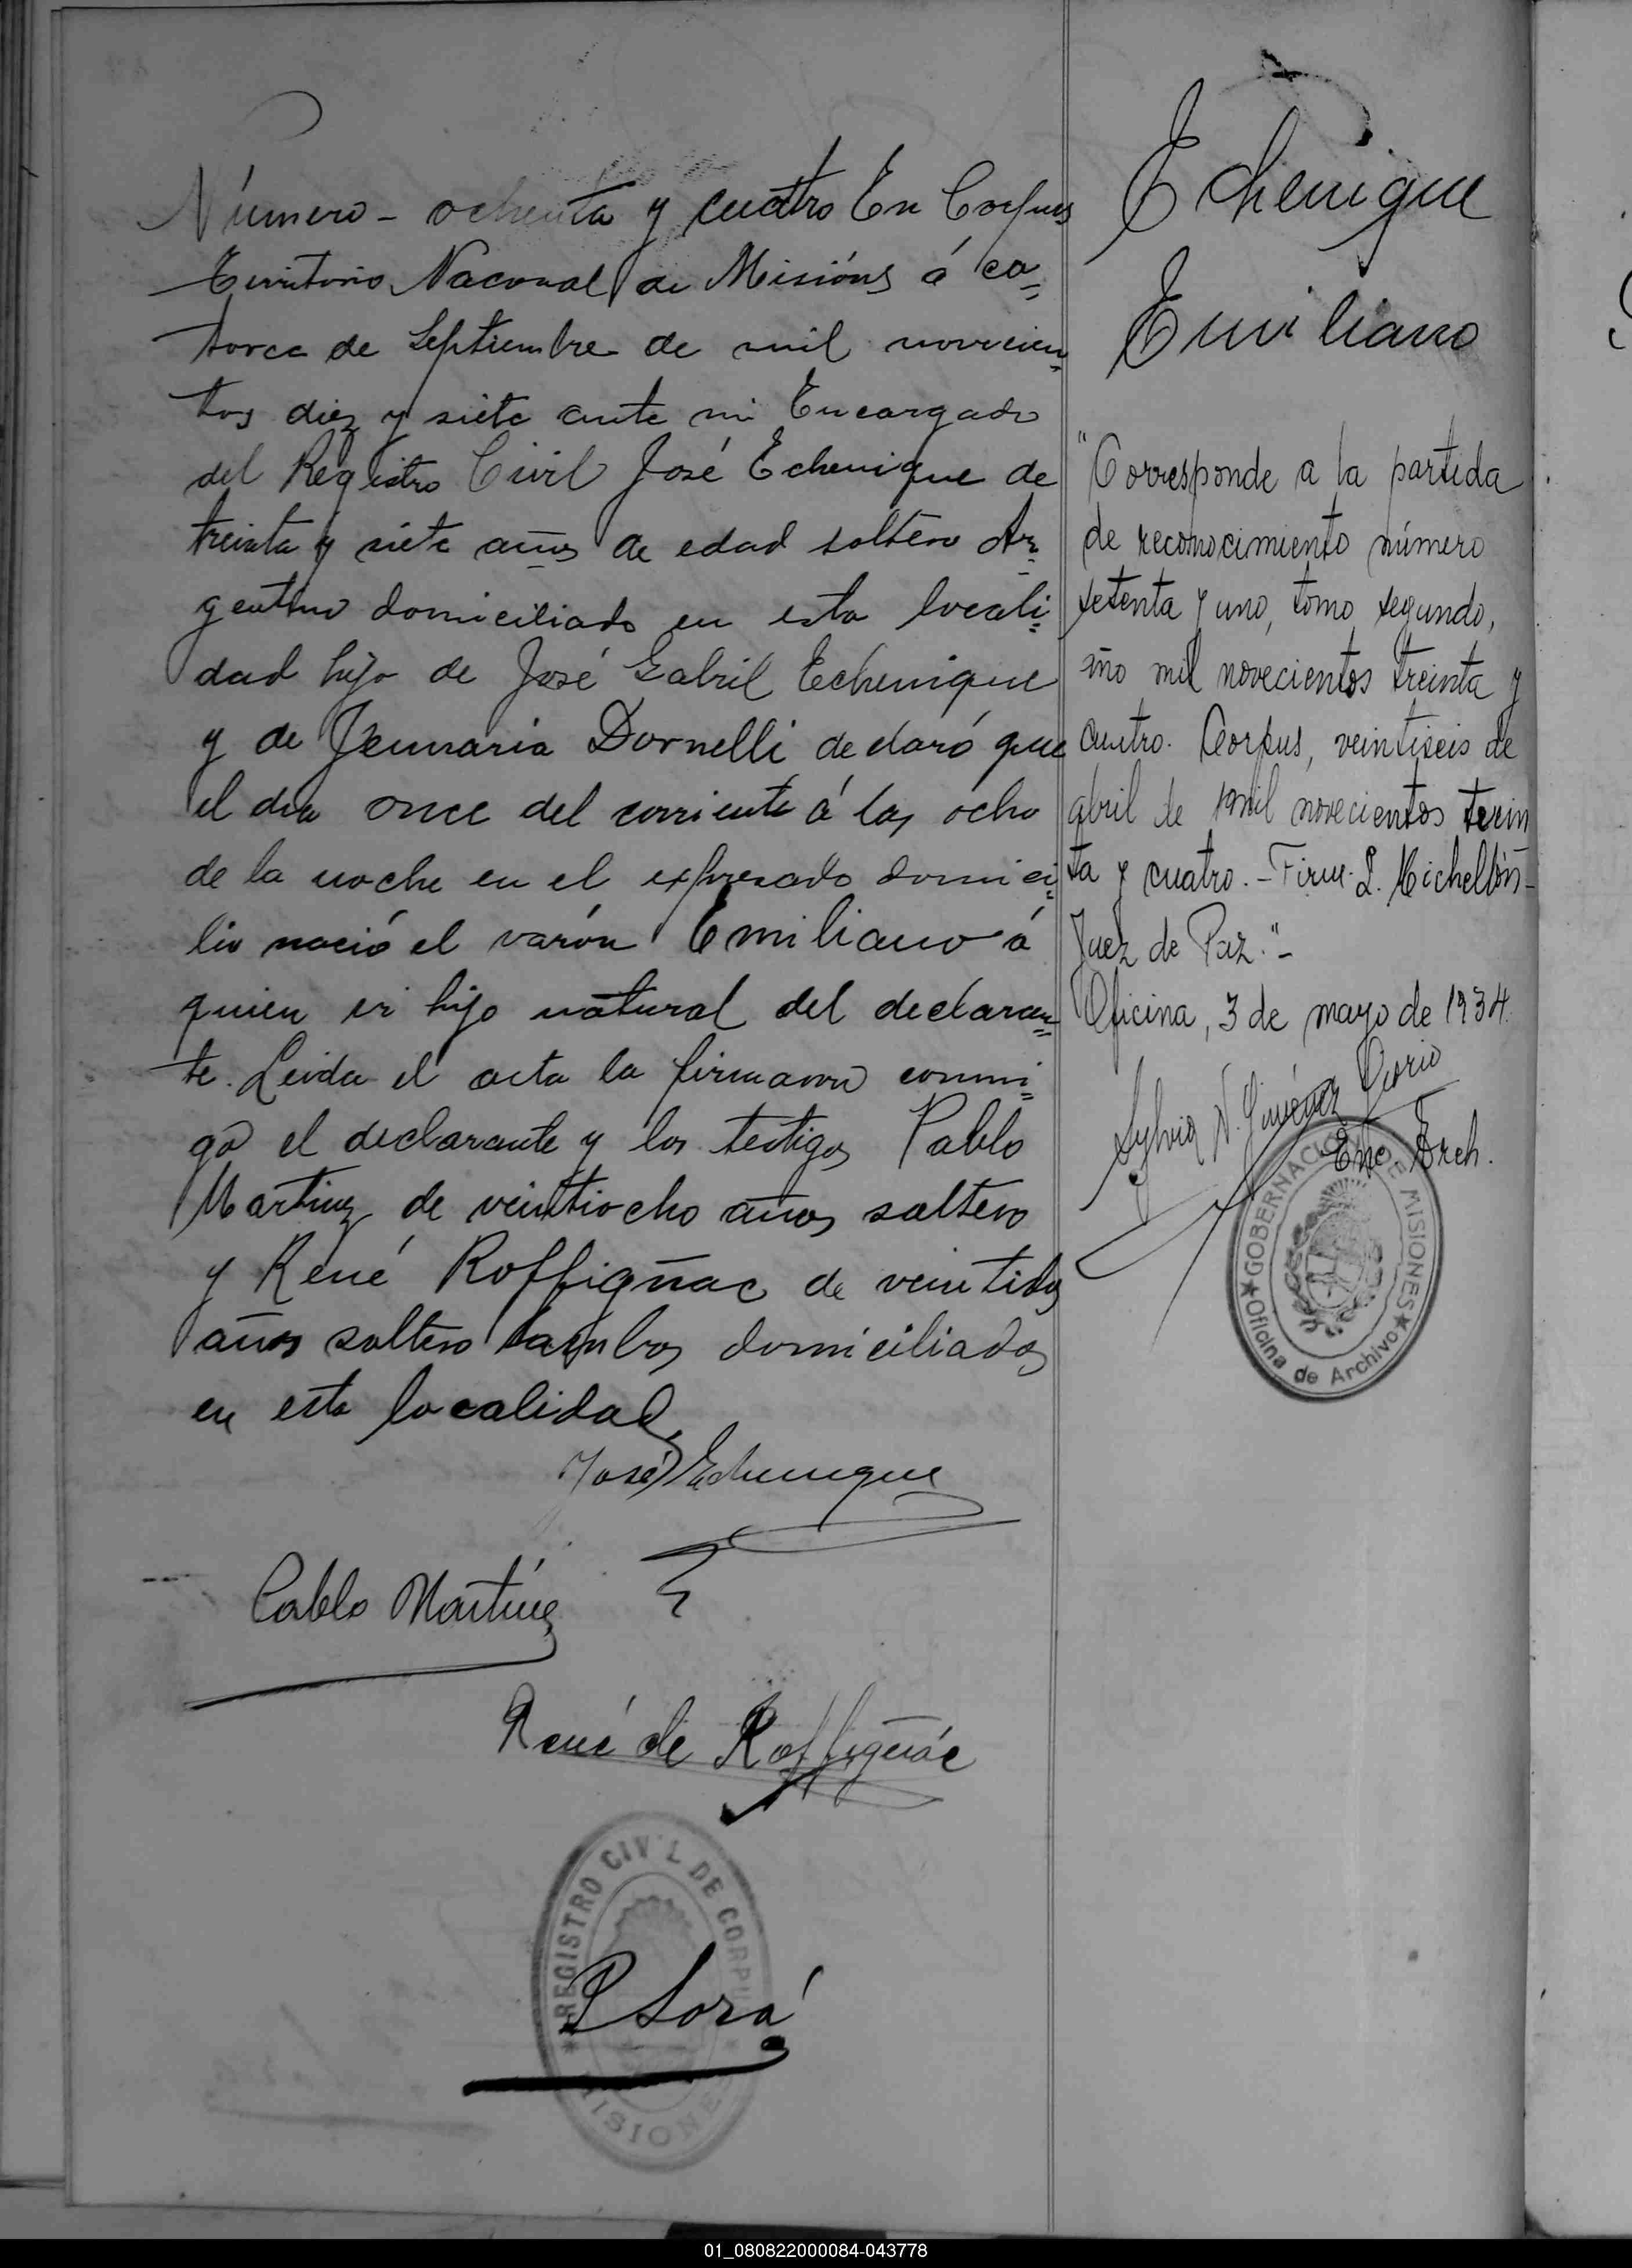 Número - ochenta y cuatro En Corpus
Territorio Nacional de Misións á ca=
torce de Septiembre de mil novecien=
tos diez y siete ante mi Encargado
del Registro Civil José Echenique de
treinta y siete años de edad soltero Ar=
gentino domiciliado en esta locali=
dad hijo de José Gabril Echenique
y de Jenuaria Dornelli declaró que
el dia once del corriente á las ocho
de la noche en el expresado domici=
lio nació el varón Emiliano á
quien es hijo natural del declaran=
te. Leida el acta la firmaron conmi=
go el declarante y los testigos Pablo
Martinez de veintiocho años soltero
y René Roffigñac de veintidos
años soltero ambos domiciliados
en esta localidad
José Echenique
Pablo Martínez
René de Roffigñác
REGISTRO CIVIL DE CORPUS
MISIONES
P Sorá
Echenique
Emiliano
"Corresponde a la partida
de reconocimiento número
setenta y uno, tomo segundo,
año mil novecientos treinta y
cuatro. Corpus, veintiseis de
abril de mil novecientos trein
ta y cuatro. - Firm. L. Michelsón -
Juez de Paz." -
Oficina, 3 de mayo de 1934.
Sylvia N. Giménez Osorio
Enc Arch.
GOBERNACION DE MISIONES
Oficina de Archivo
01_080822000084-043778